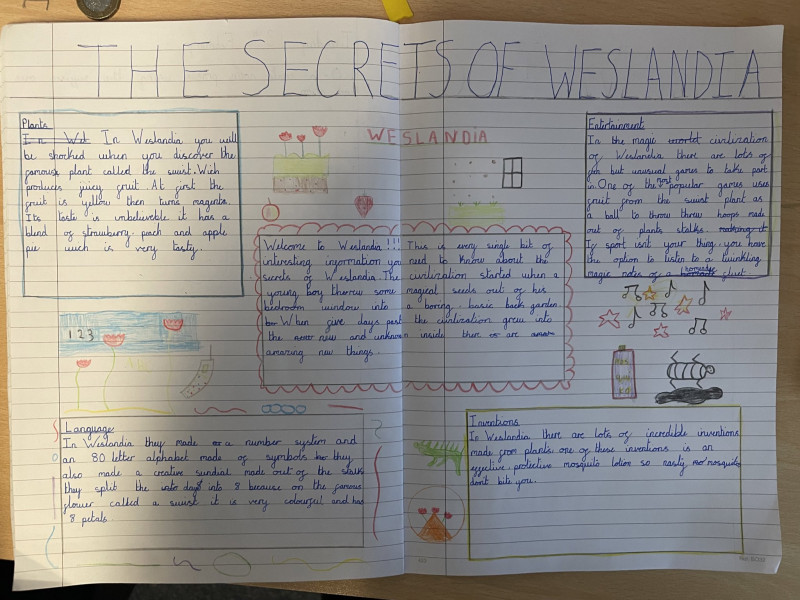 THE SECRETS OF WESLANDIA
Plants
In Wet In Weslandia you will
be shocked when you discover the
famous plant called the swust. Wich
produces juicy fruit At first the
fruit is yellow then turns magenta.
Its taste is unbelievable it has a
blend of strawberry. peach and apple
pie wich is very tasty.
WESLANDIA
Entertainment
In the magic world civilization
of Weslandia there are lots of
fun but unusual games to take part
in. One of the most popular games uses
fruit from the swust plant as
a ball to throw threw hoops made
out of plants stalks.
If sport isnt your thing, you have
the option to listen to a twinkling
magic notes of a homemade flute.
Welcome to Weslandia!!! This is every single bit of
interesting information you need to know about the
secrets of Weslandia. The civilization started when a
young boy threw some magical seeds out of his
bedroom window into a boring. basic back garden.
When five days past the civilization grew into
the new and unknown inside there are
amazing new things.
1 2 3
Language
In Weslandia they made a number system and
an 80 letter alphabet made of symbols they
also made a creative sundial made out of the stalks
they split the day into 8 because on the famous
flower called a swust it is very colourful and has
8 petals.
Inventions
In Weslandia there are lots of incredible inventions
made from plants. one of these inventions is an
effective. protective mosquito lotion so nasty mosquitos
dont bite you.